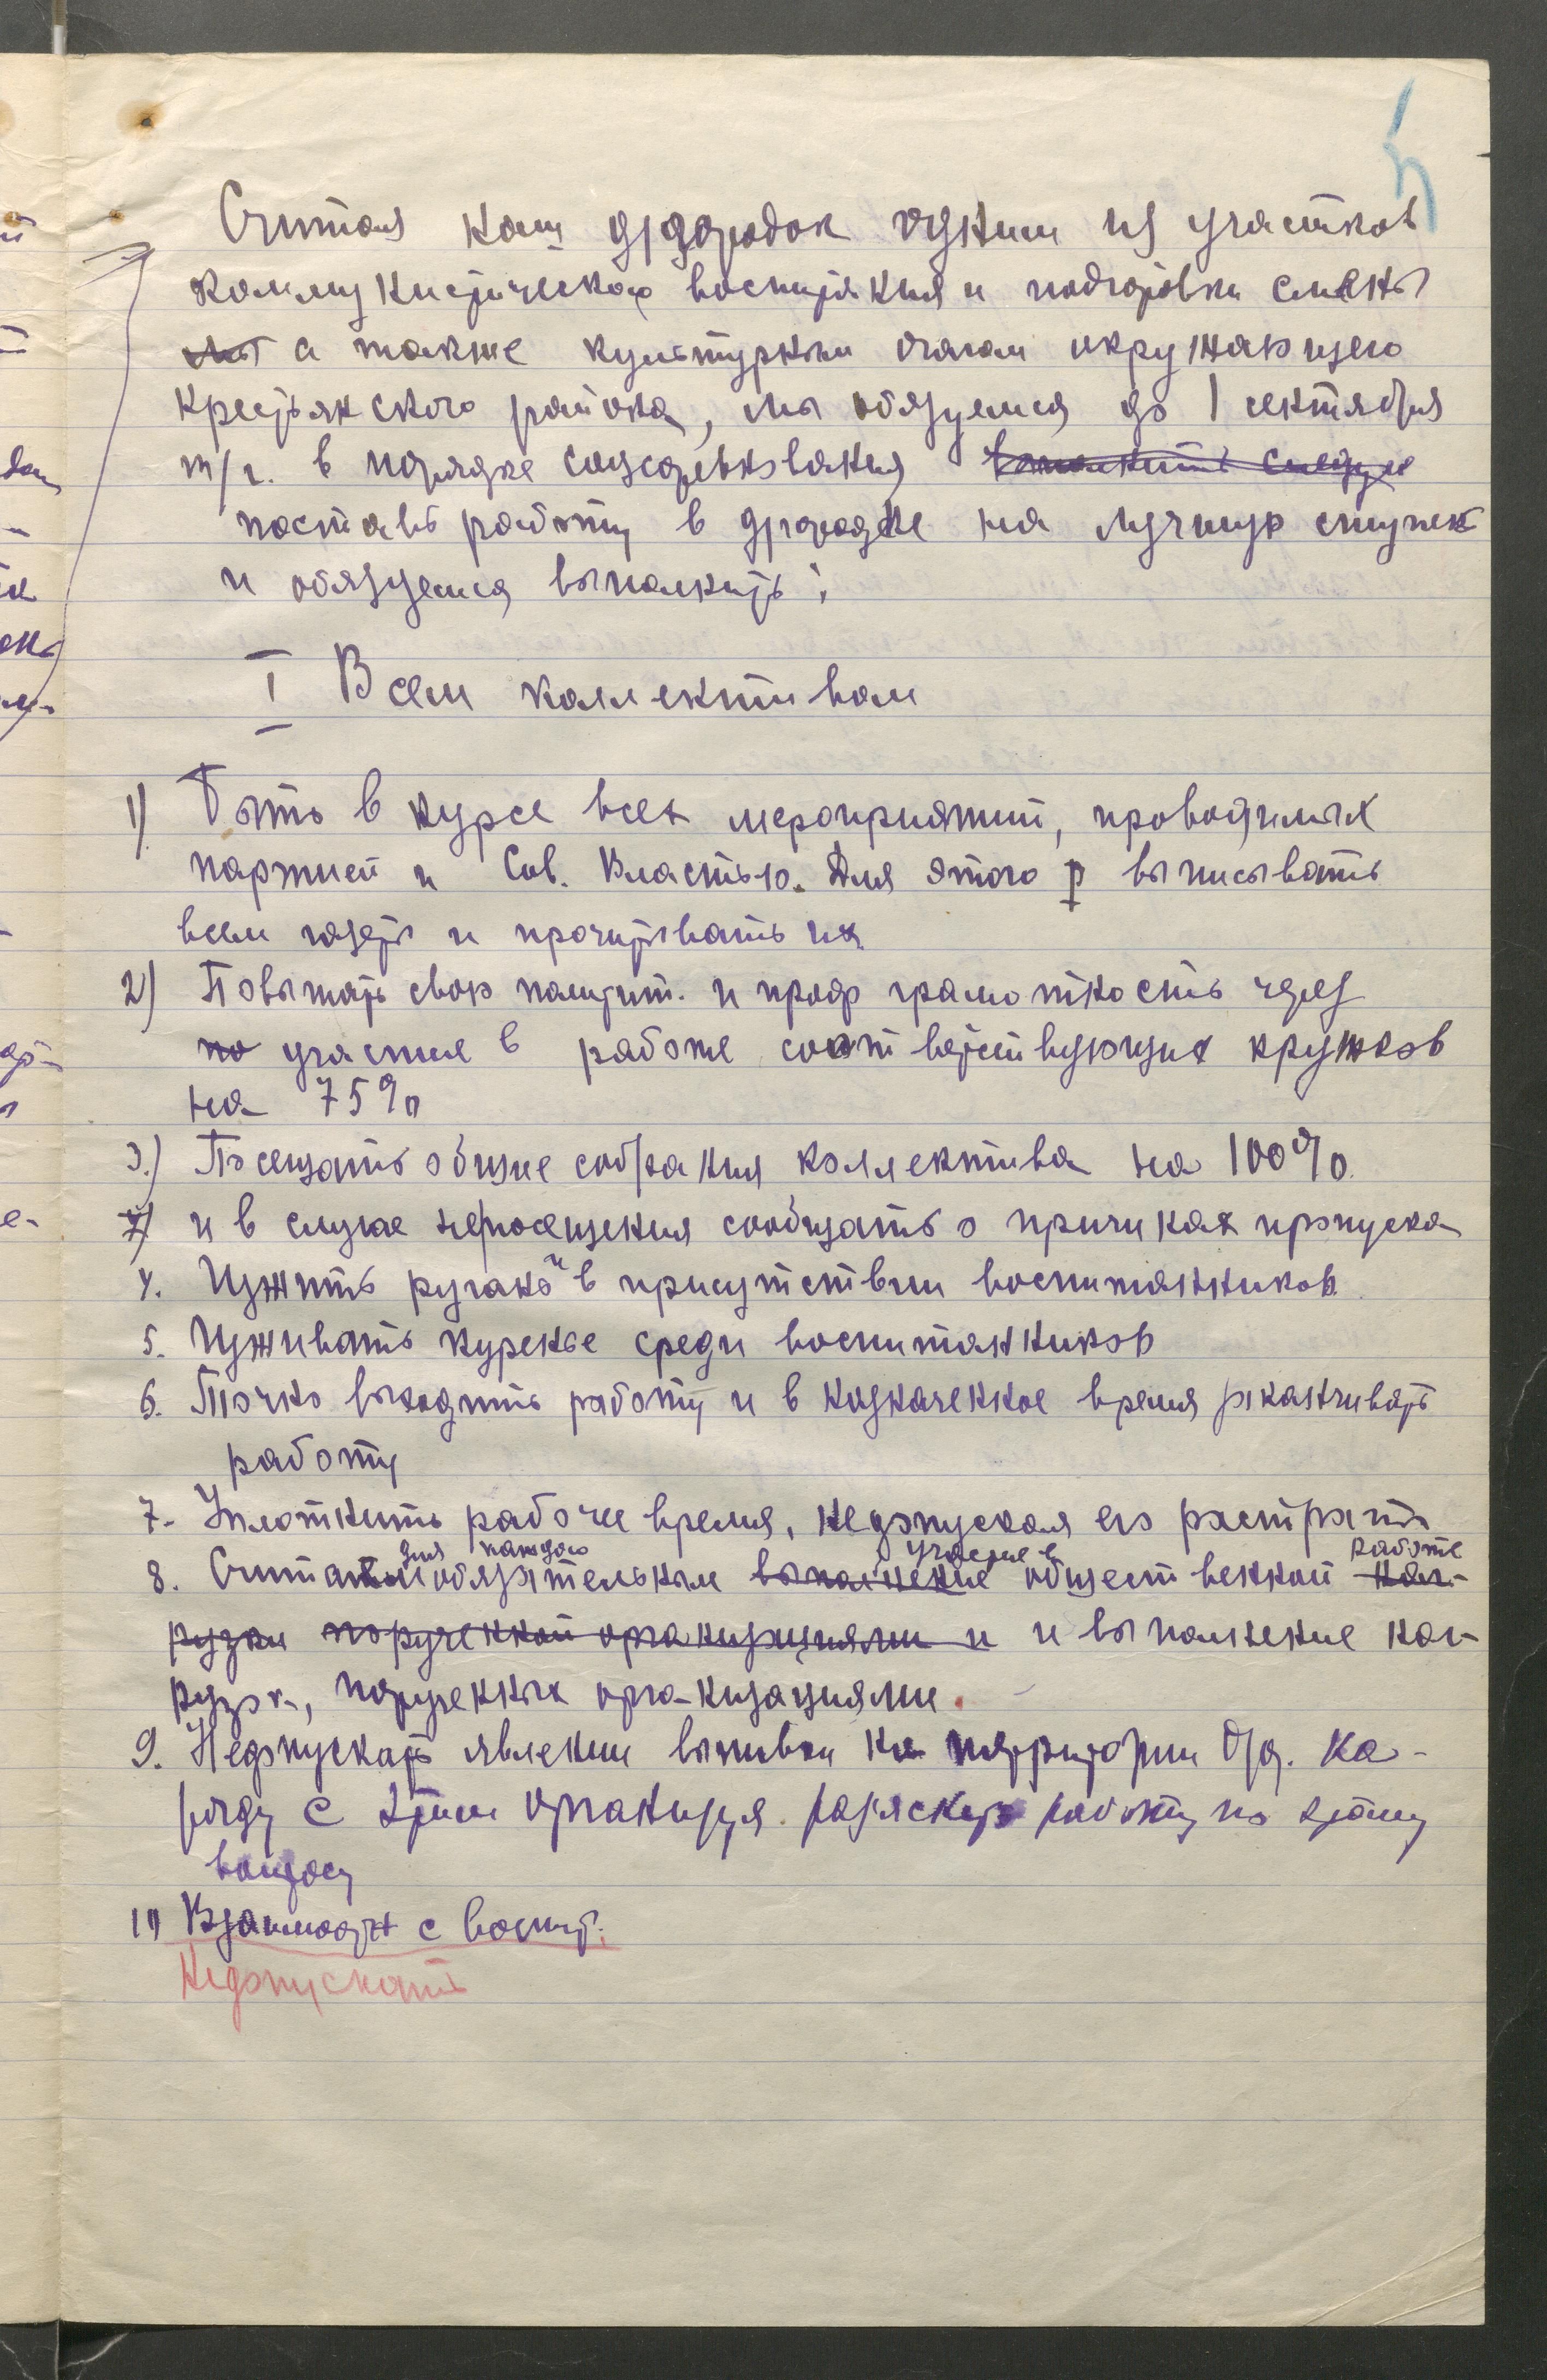 Считая наш д/городок одним из участков
коммунистического воспитания и подготовки смены
мы а также культурным очагом окружающего
Крестьянского района, мы обязуемся до 1 сентября
т/г. в порядке соцсоревнования выполнить следующее
поставить работу в д/городке на лучшую ступень
и обязуемся выполнить:
I Всем коллективом
1) Быть в курсе всех мероприятий, проводимых
партией и Сов. Властью. Для этого выписывать
всем газеты и прочитывать их
2) Повышать свою политит. и проф грамотность через
по участие в работе соответствующих кружков
на 75%
3.) Посещать общие собрания коллектива на 100%.
и в случае непосещения сообщать о причинах пропуска
4. Изжить ругань в присутствии воспитанников
5. Изживать куренье среди воспитанников
6. Точно выходить работу и в назначенное время оканчивать
работу
7. Уплотнить рабочее время, недопуская его растраты
8. Считать для каждого обязательным выполнение участие в общественной работе наг-
рузки порученной организациями и и выполнение наг-
рузок, порученных организациями.
9. Недопускать явлении выпивки на территории д/г. На-
ряду с этим организуя раз'яснит. работу по этому
вопросу
10 Взаимоотн с воспит.
Недопускать